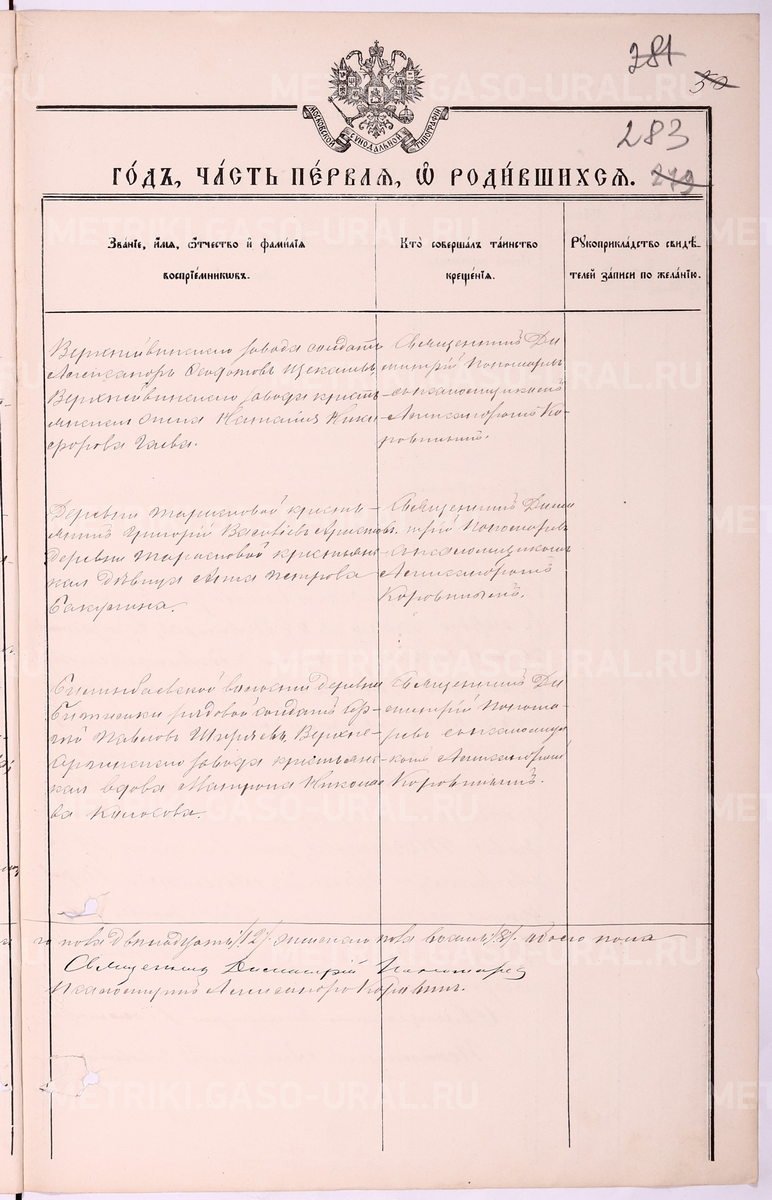 281
50
283
279
МОСКОВСКОЙ СѴНОДАЛЬНОЙ ТИПОГРАФІИ
ГО́ДЪ, ЧА́СТЬ ПЕ́РВАЯ, Ѿ РОДИ́ВШИХСЯ.
Зва́нїе, и҆́мя, ѻ҆́тчество и҆ фами́лїя
воспрїе́мниковъ.
Кто̀ соверша́лъ та́инство
креще́нїя.
Рꙋкоприкла́дство свидѣ́-
телей за́писи по жела́нїю.
завода солдатъ
Александръ Ѳедотовъ
завода кресть-
янская жена Наталія Ники-
форова Гаева.
Священникъ Ди-
митрій Пономаревъ
съ псаломщикомъ
Александромъ Ко-
ровинымъ.
Деревни Тарасковой кресть-
янинъ Григорій
деревни Тарасковой крестьян-
ская дѣвица Анна Петрова
Священникъ Дими-
трій Пономаревъ
съ псаломщикомъ
Александромъ
Коровинымъ.
Билимбаевской волости деревни
рядовой солдатъ
Павловъ Верхне-
завода крестьян-
ская вдова Матрона Николае-
ва Колосова.
Священникъ Ди-
митрій Понома-
ревъ съ псаломщи-
комъ Александромъ
Коровинымъ.
го пола двѣнадцать /12/. женскаго пола восемь /8/. обоего пола
Священникъ Димитрій Пономаревъ
Псаломщикъ Александръ Коровинъ.
METRIKI.GASO-URAL.RU